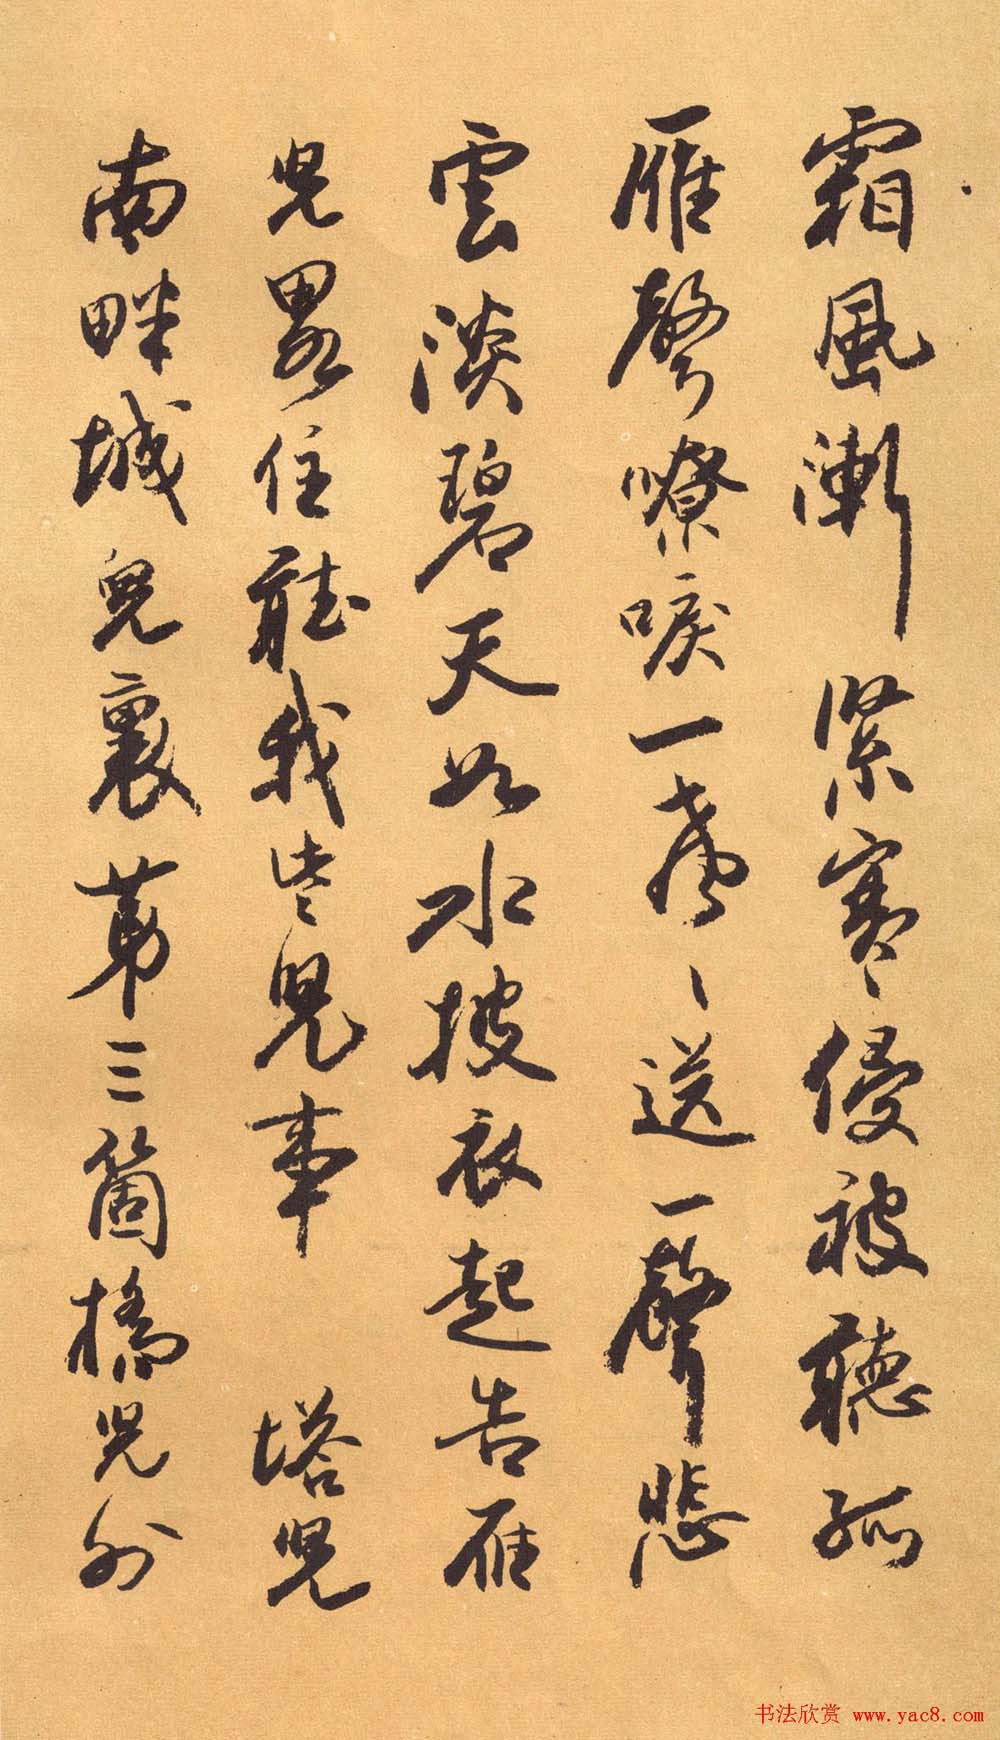 霜風漸緊寒侵被聽孤
雁聲嘹唳一聲ヽ送一聲悲
雲淡碧天如水披衣起告雁
兒畧住聽我些兒事 塔兒
南畔城兒裏第三箇橋兒外
书法欣赏 www.yac8.com